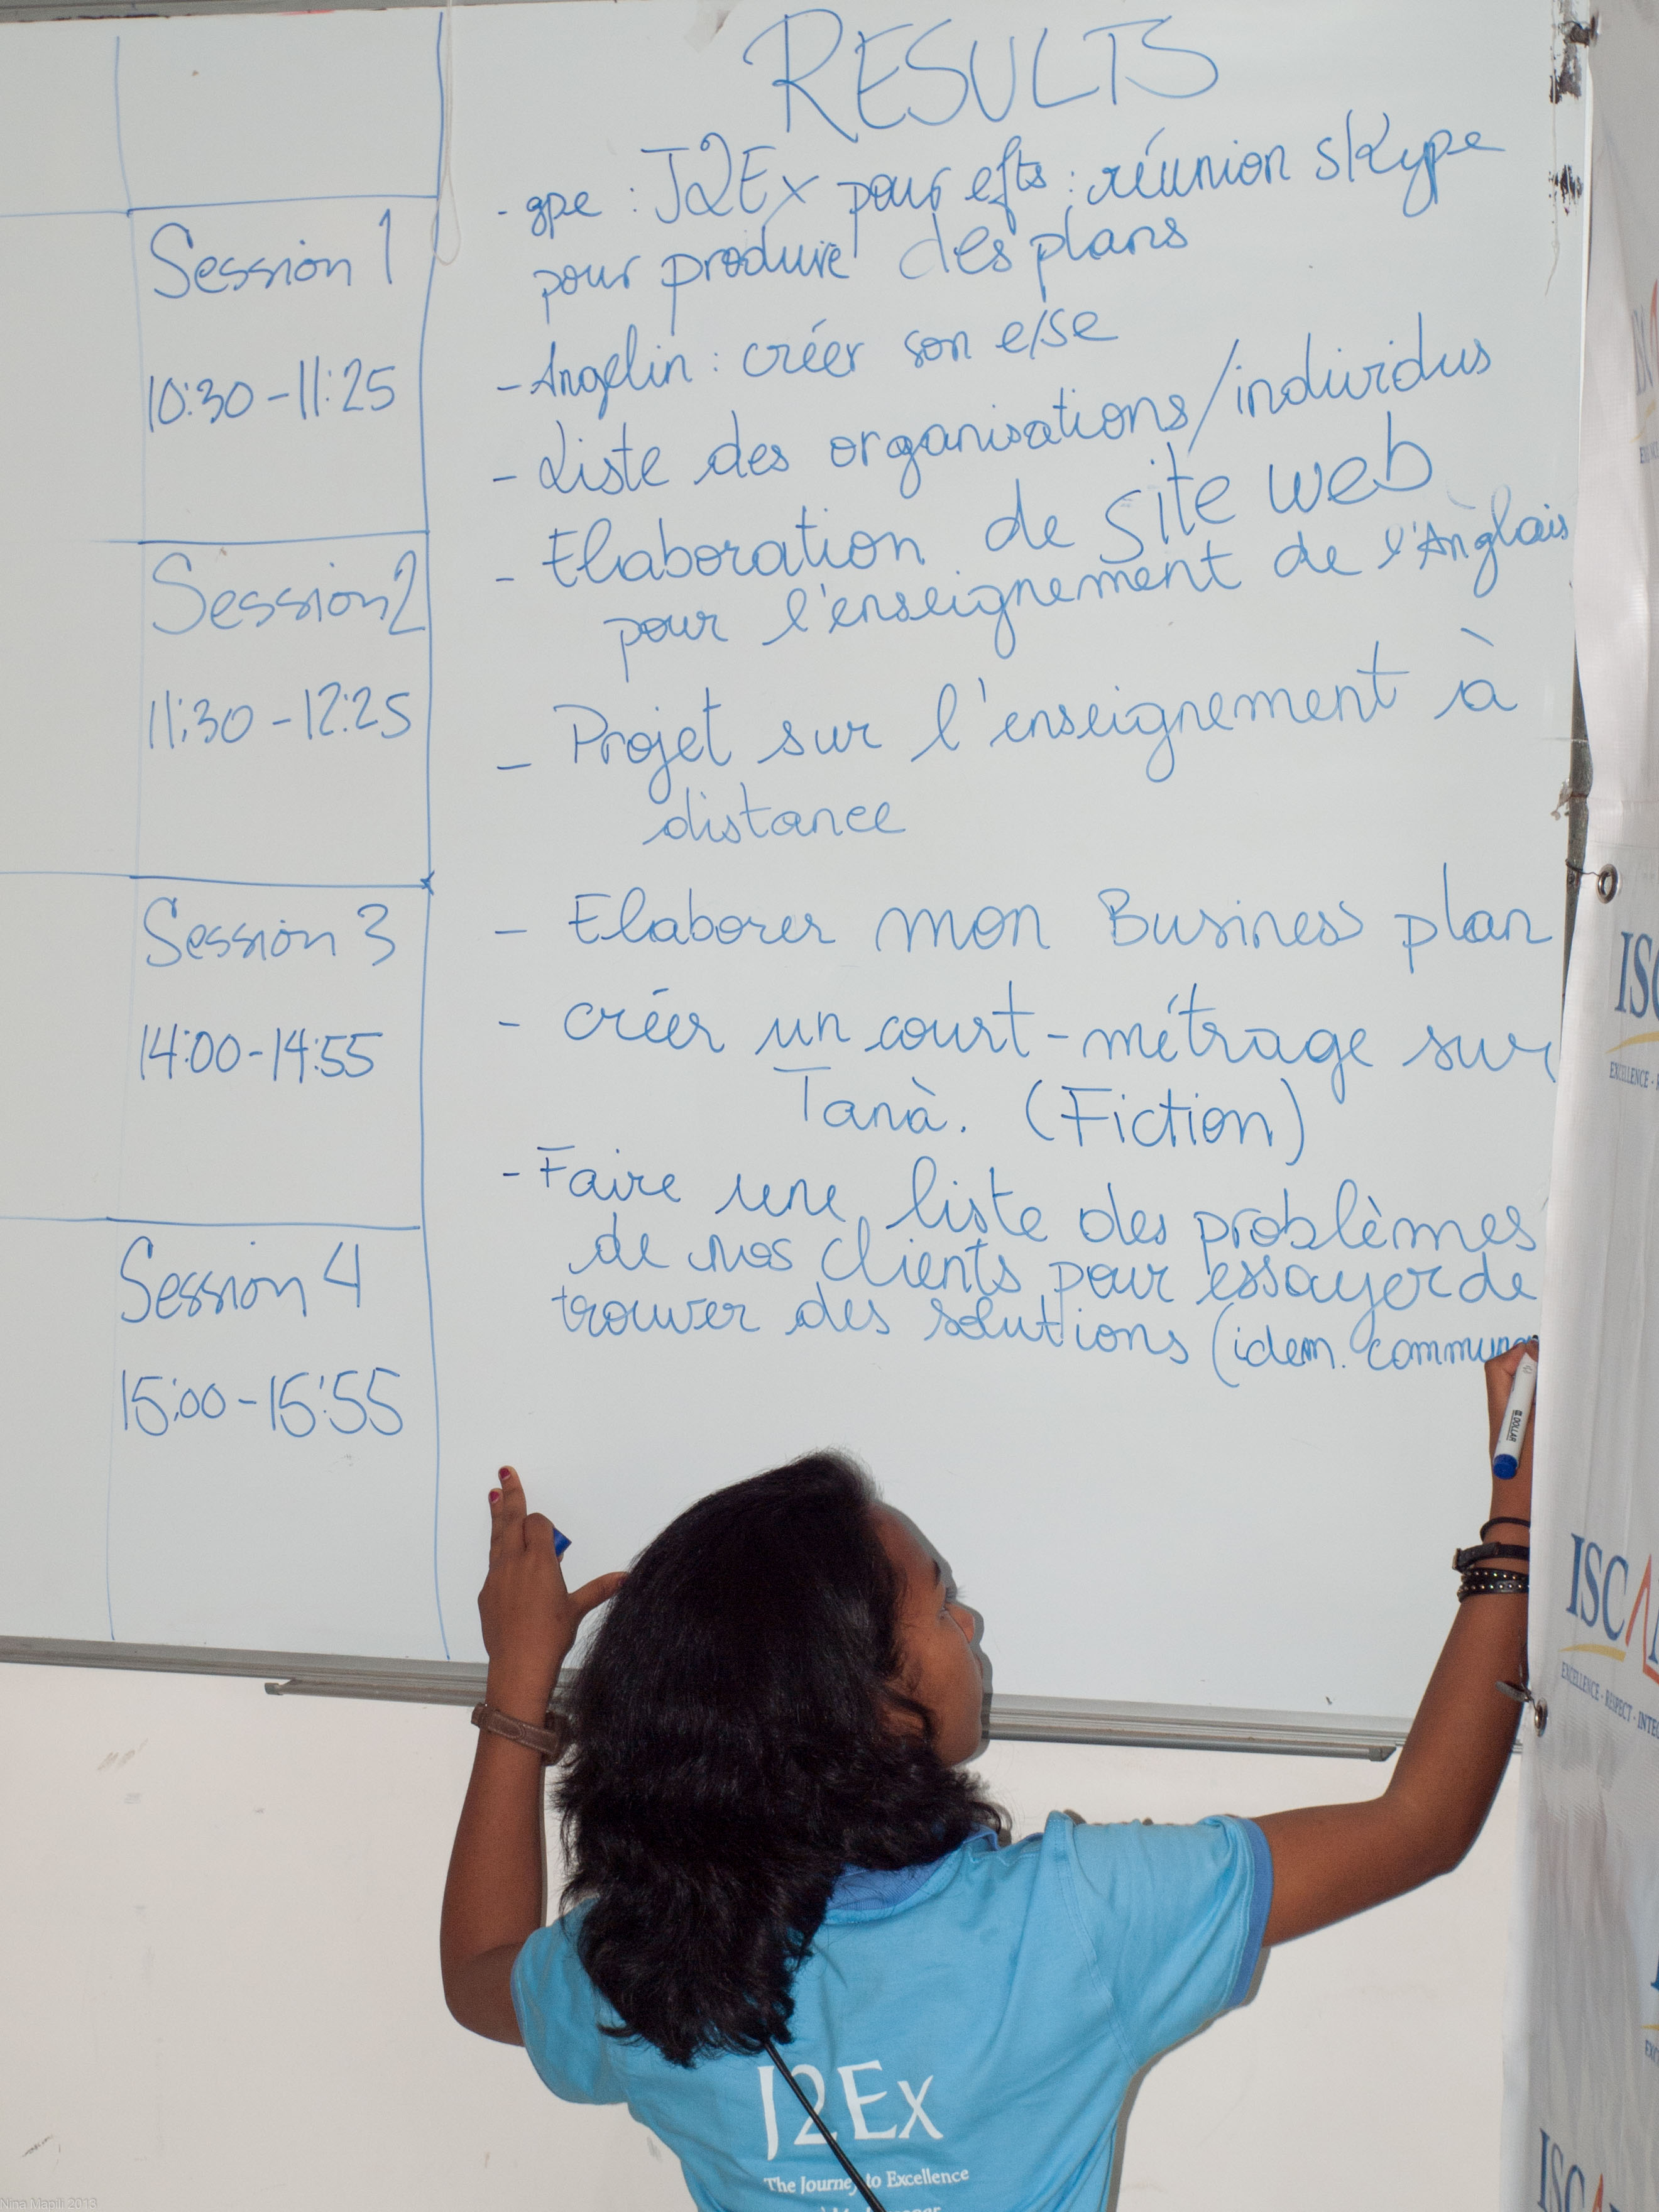 Session 1
10:30 - 11:25
Session 2
11:30 - 12:25
Session 3
14:00 - 14:55
Session 4
15:00 - 15:55
RESULTS
- gpe : J2Ex pour efts : réunion skype
pour produire des plans
- Angelin : créer son e/se
- Liste des organisations/individus
- Elaboration de site web
pour l'enseignement de l'Anglais
- Projet sur l'enseignement à
distance
- Elaborer mon Business plan
- créer un court-métrage sur
Tanà. (Fiction)
- Faire une liste des problèmes
de nos clients pour essayer de
trouver des solutions (idem.
DOLLAR
J2Ex
The Journey to Excellence
ISC
EXCELLENCE -
ISCA
EXCELLENCE - RESPECT - INTEG
Nina Mapili 2013